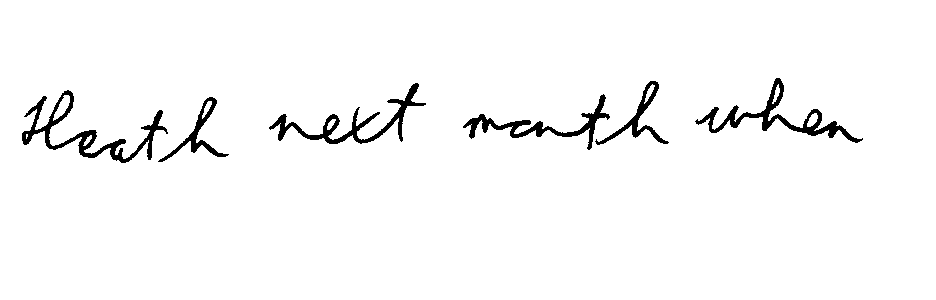 Heath next month when